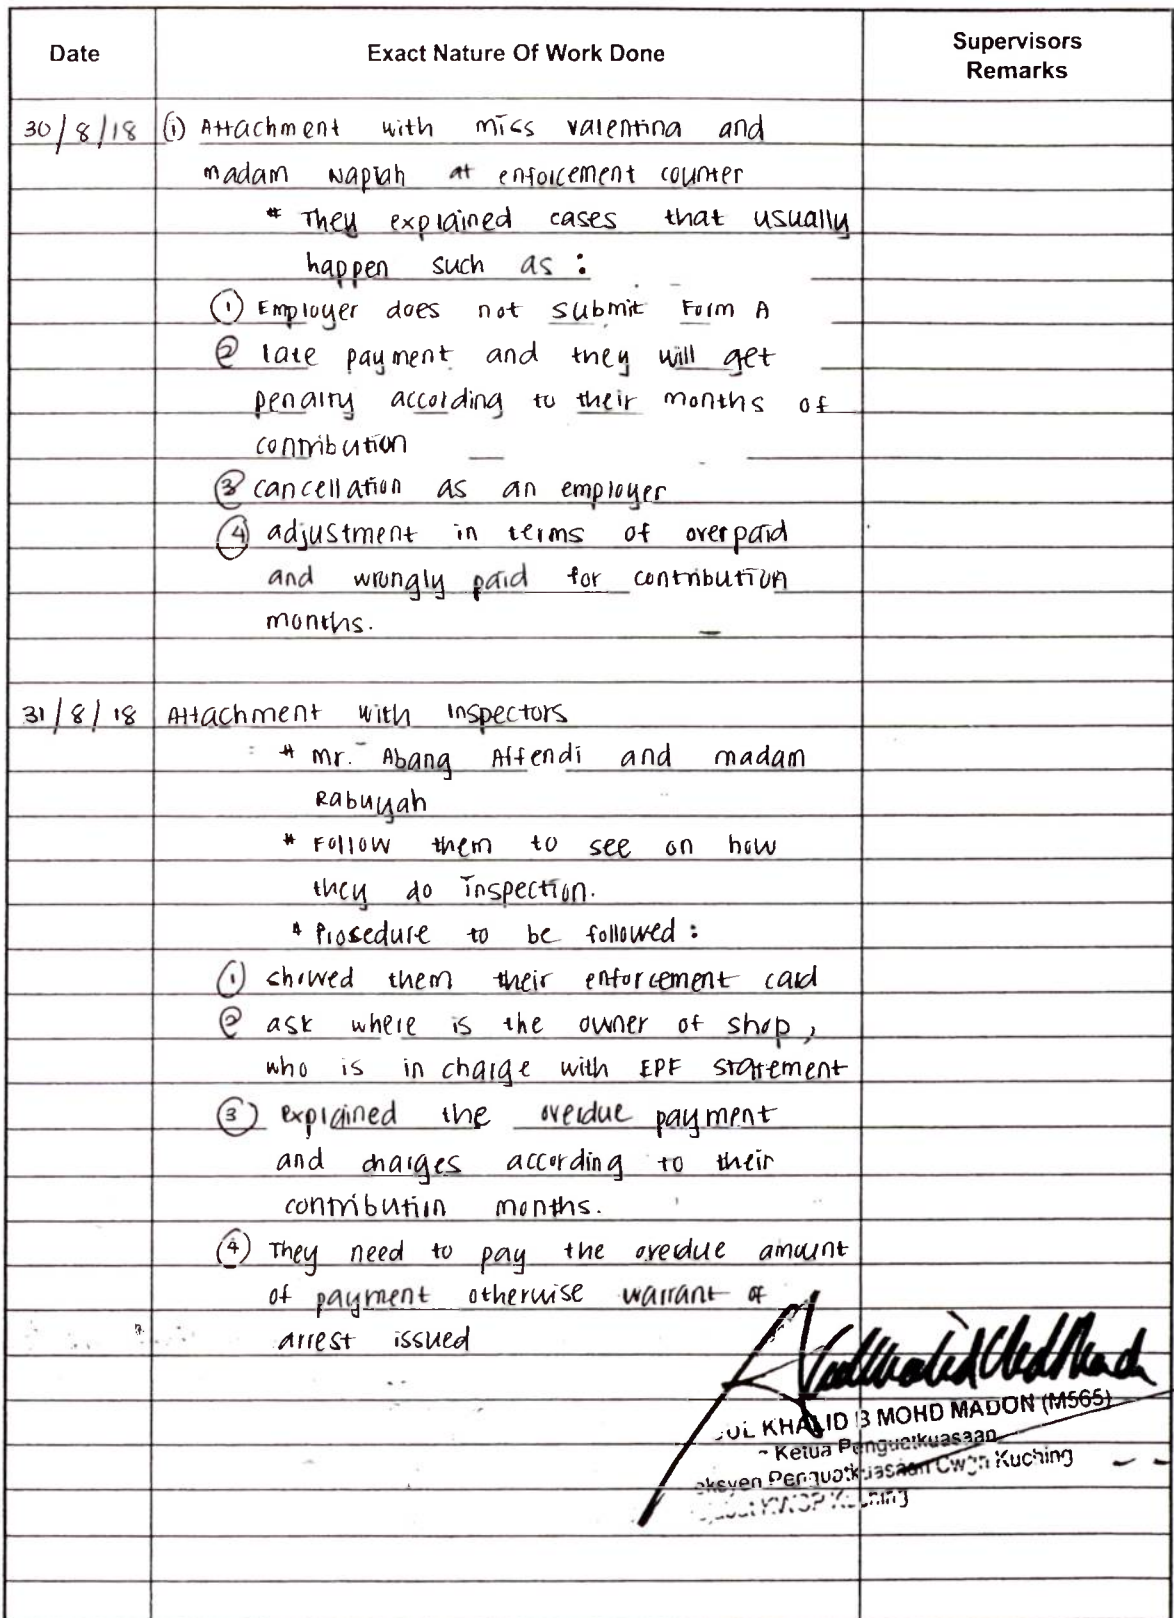 Date Exact Nature Of Work Done Supervisors
Remarks
30/8/18 (i) Attachment with miss valentina and
madam Napiah at enforcement counter
* They explained cases that usually
happen such as :
① Employer does not submit Form A
② late payment and they will get
penalty according to their months of
contribution
③ cancellation as an employer
④ adjustment in terms of overpaid
and wrongly paid for contribution
months.
31/8/18 Attachment with Inspectors
* Mr. Abang Affendi and madam
Rabuyah
* Follow them to see on how
they do inspection.
* Prosedure to be followed :
① showed them their enforcement card
② ask where is the owner of shop,
who is in charge with EPF statement
③ explained the overdue payment
and charges according to their
contribution months.
④ They need to pay the overdue amount
of payment otherwise warrant of
arrest issued
KHALID B MOHD MADON (M565)
Ketua Penguatkuasaan
Penguatkuasaan Cwgn Kuching
KWSP Kuching